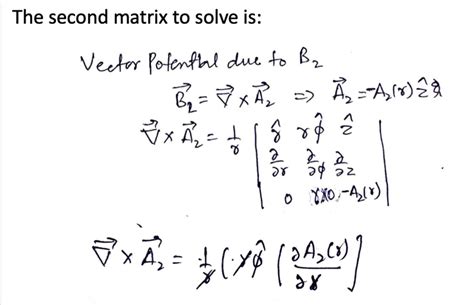 The second matrix to solve is:
Vector Potential due to B₂
B⃗₂ = ∇⃗ × A⃗₂ ⇒ A⃗₂ = -A₂(r) ẑ
∇⃗ × A⃗₂ = 1/r | r̂ rφ̂ ẑ
∂/∂r ∂/∂φ ∂/∂z
0 r×0 -A₂(r) |
∇⃗ × A⃗₂ = 1/r ( rφ̂ [ ∂A₂(r)/∂r ]